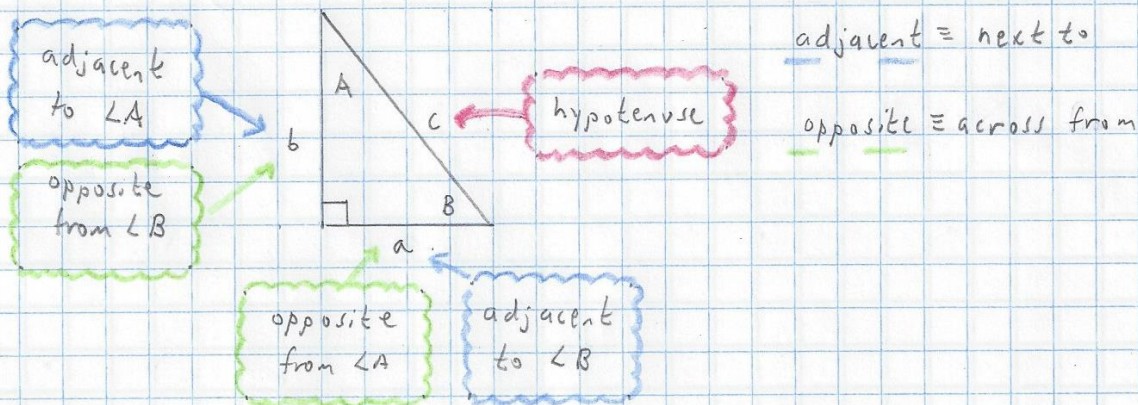 adjacent
to ∠A
opposite
from ∠B
A
b
c
B
a
hypotenuse
opposite
from ∠A
adjacent
to ∠B
adjacent ≡ next to
opposite ≡ across from